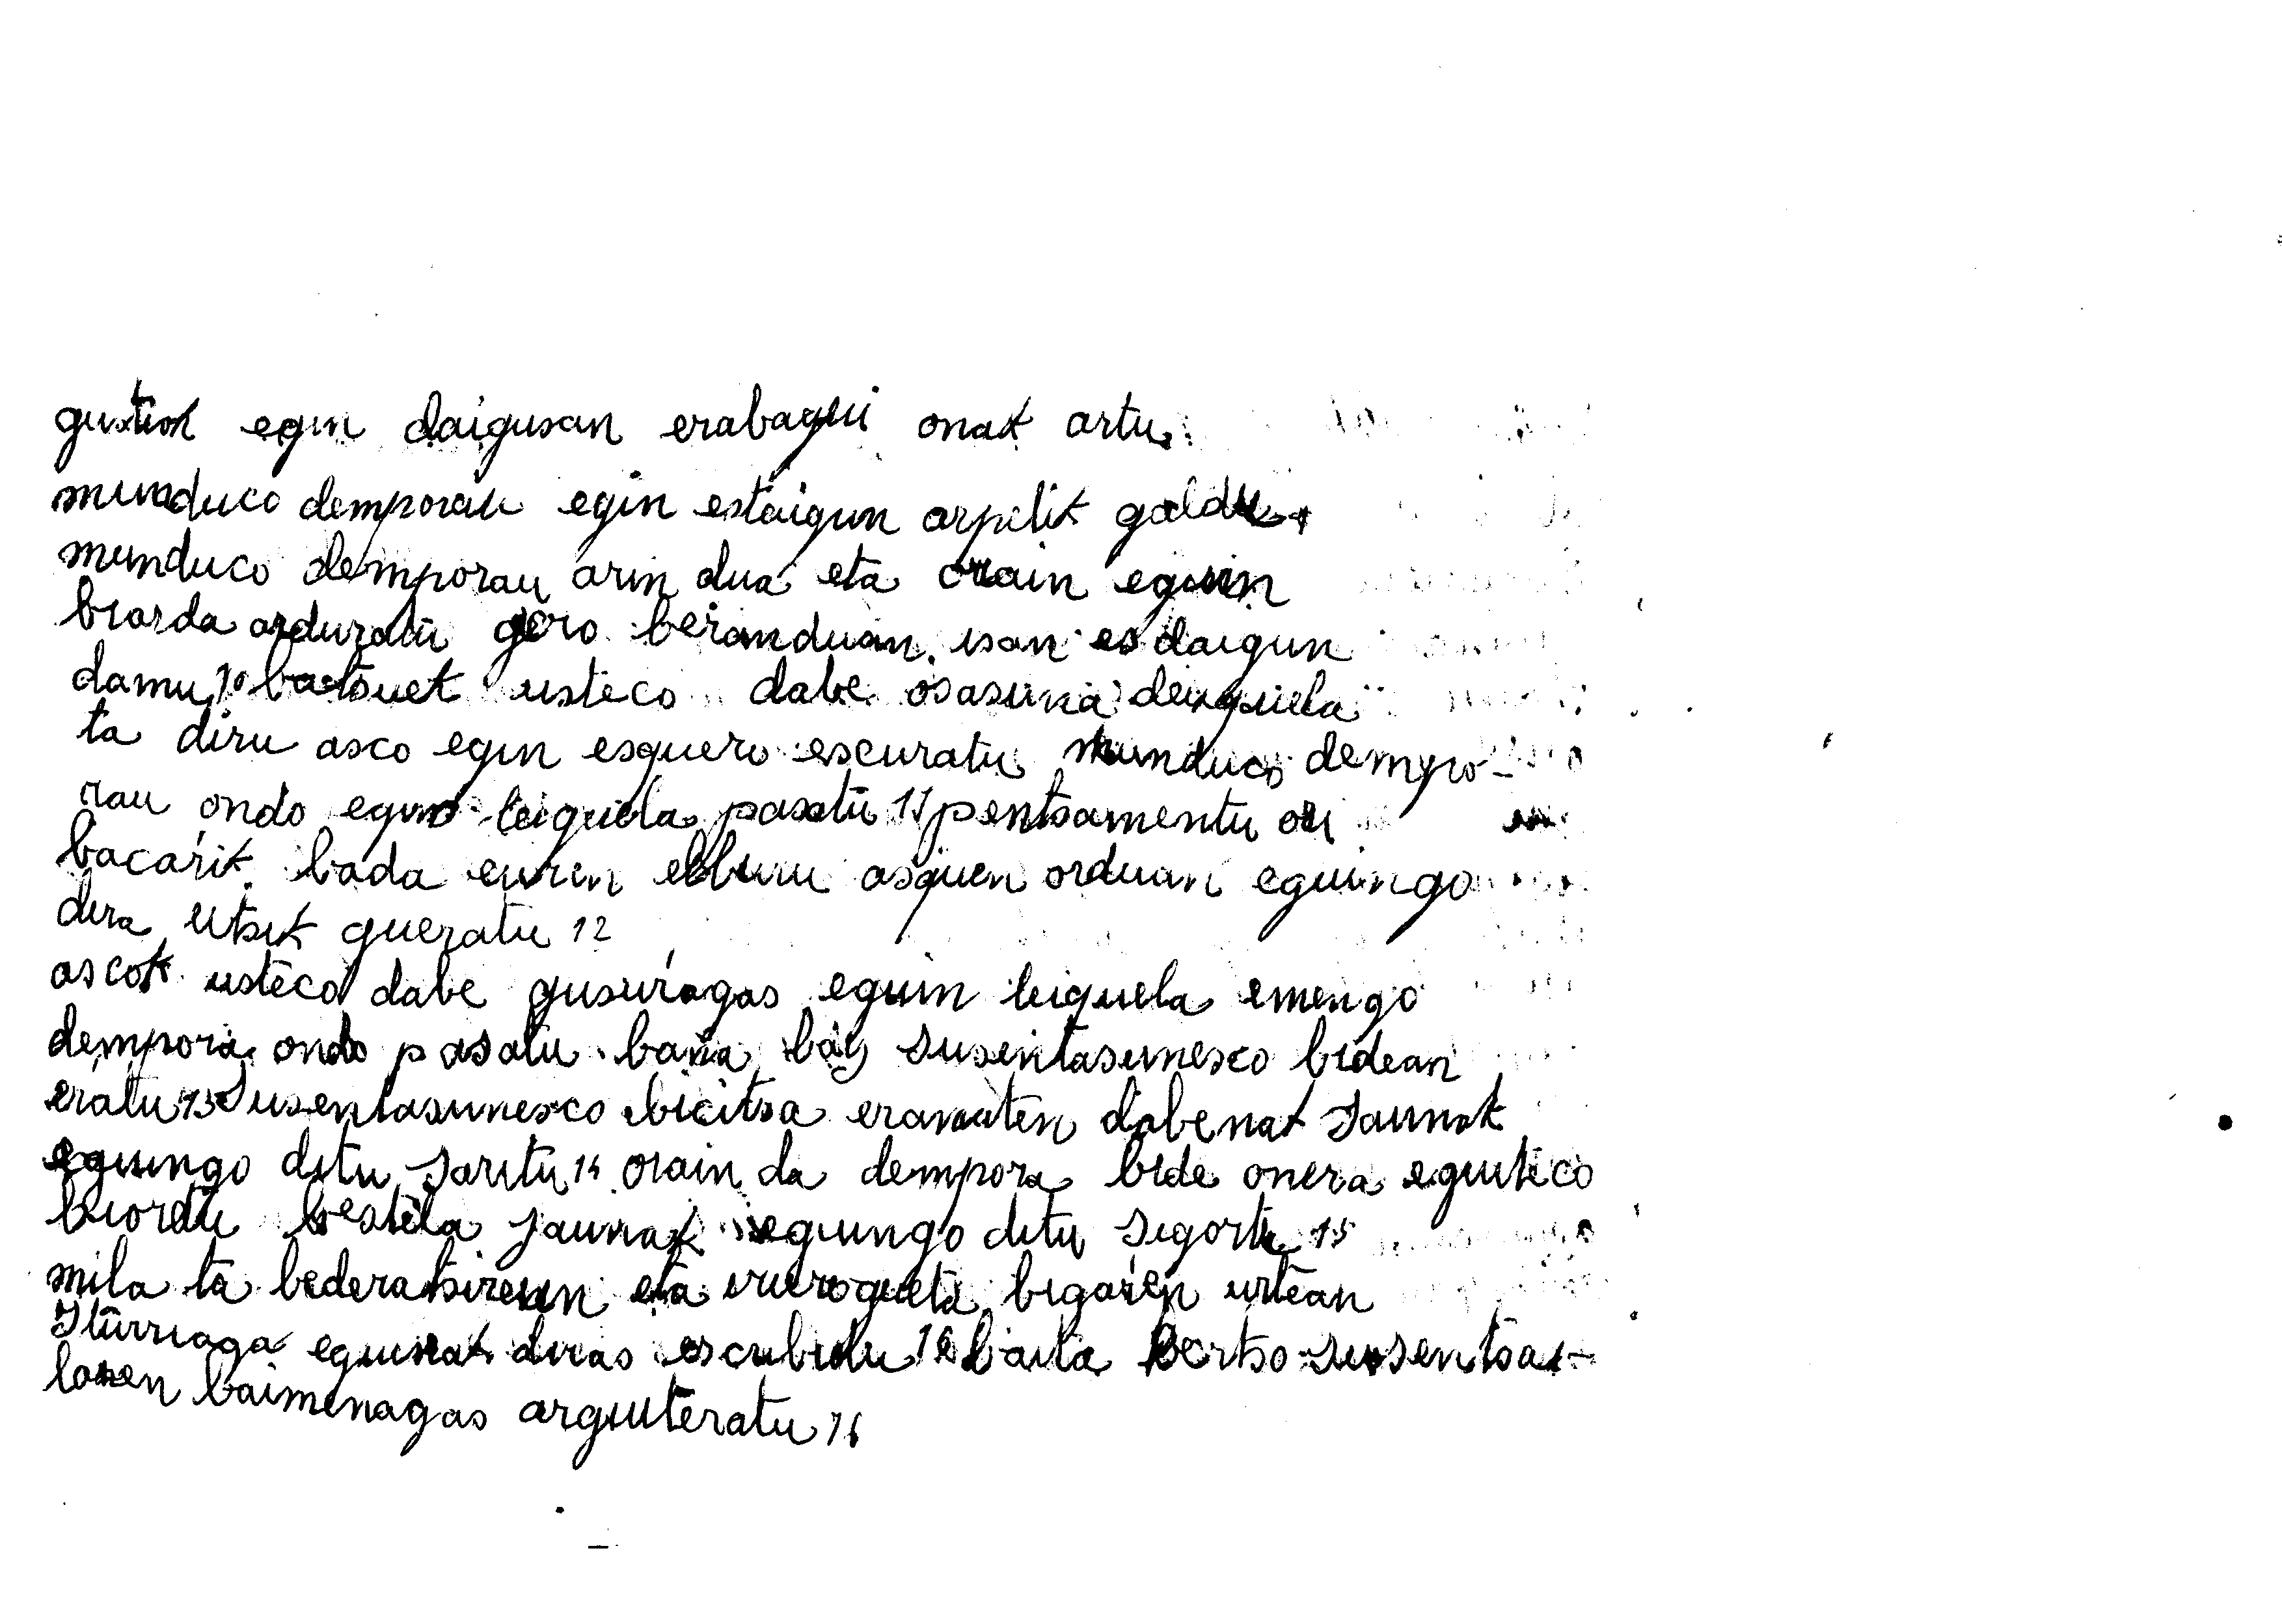 gustiok egin daigusan erabagui onak artu.
munduco demporau egin estaigun arpelik galdu
munduco demporau arin dua eta orain eguin
biarda arduratu gero beranduan isan es daigun
damu 10 batsuek usteco dabe osasuna deuquela
ta diru asco egin esquero escuratu munduco dempo-
rau ondo egin leiquela pasatu 11 pentsamentu ori
bacarik bada euren elburu asquen orduan eguingo
dira utsik queratu 12
ascok usteco dabe gusurragas eguin leiquela emengo
dempora ondo pasatu baña susentasunesco bidean
eratu 13 Susentasunesco bicitsa eramaten dabenak Jaunak
eguingo ditu saritu 14 orain da dempora bide onera eguiteco
biortu bestela jaunak eguingo ditu sigortu 15
mila ta bederatsireun eta irurogueta bigarren urtean
Iturriaga eguinak diras escubidu 16 baita Bertso susentsai-
laren baimenagas arguiteratu 16